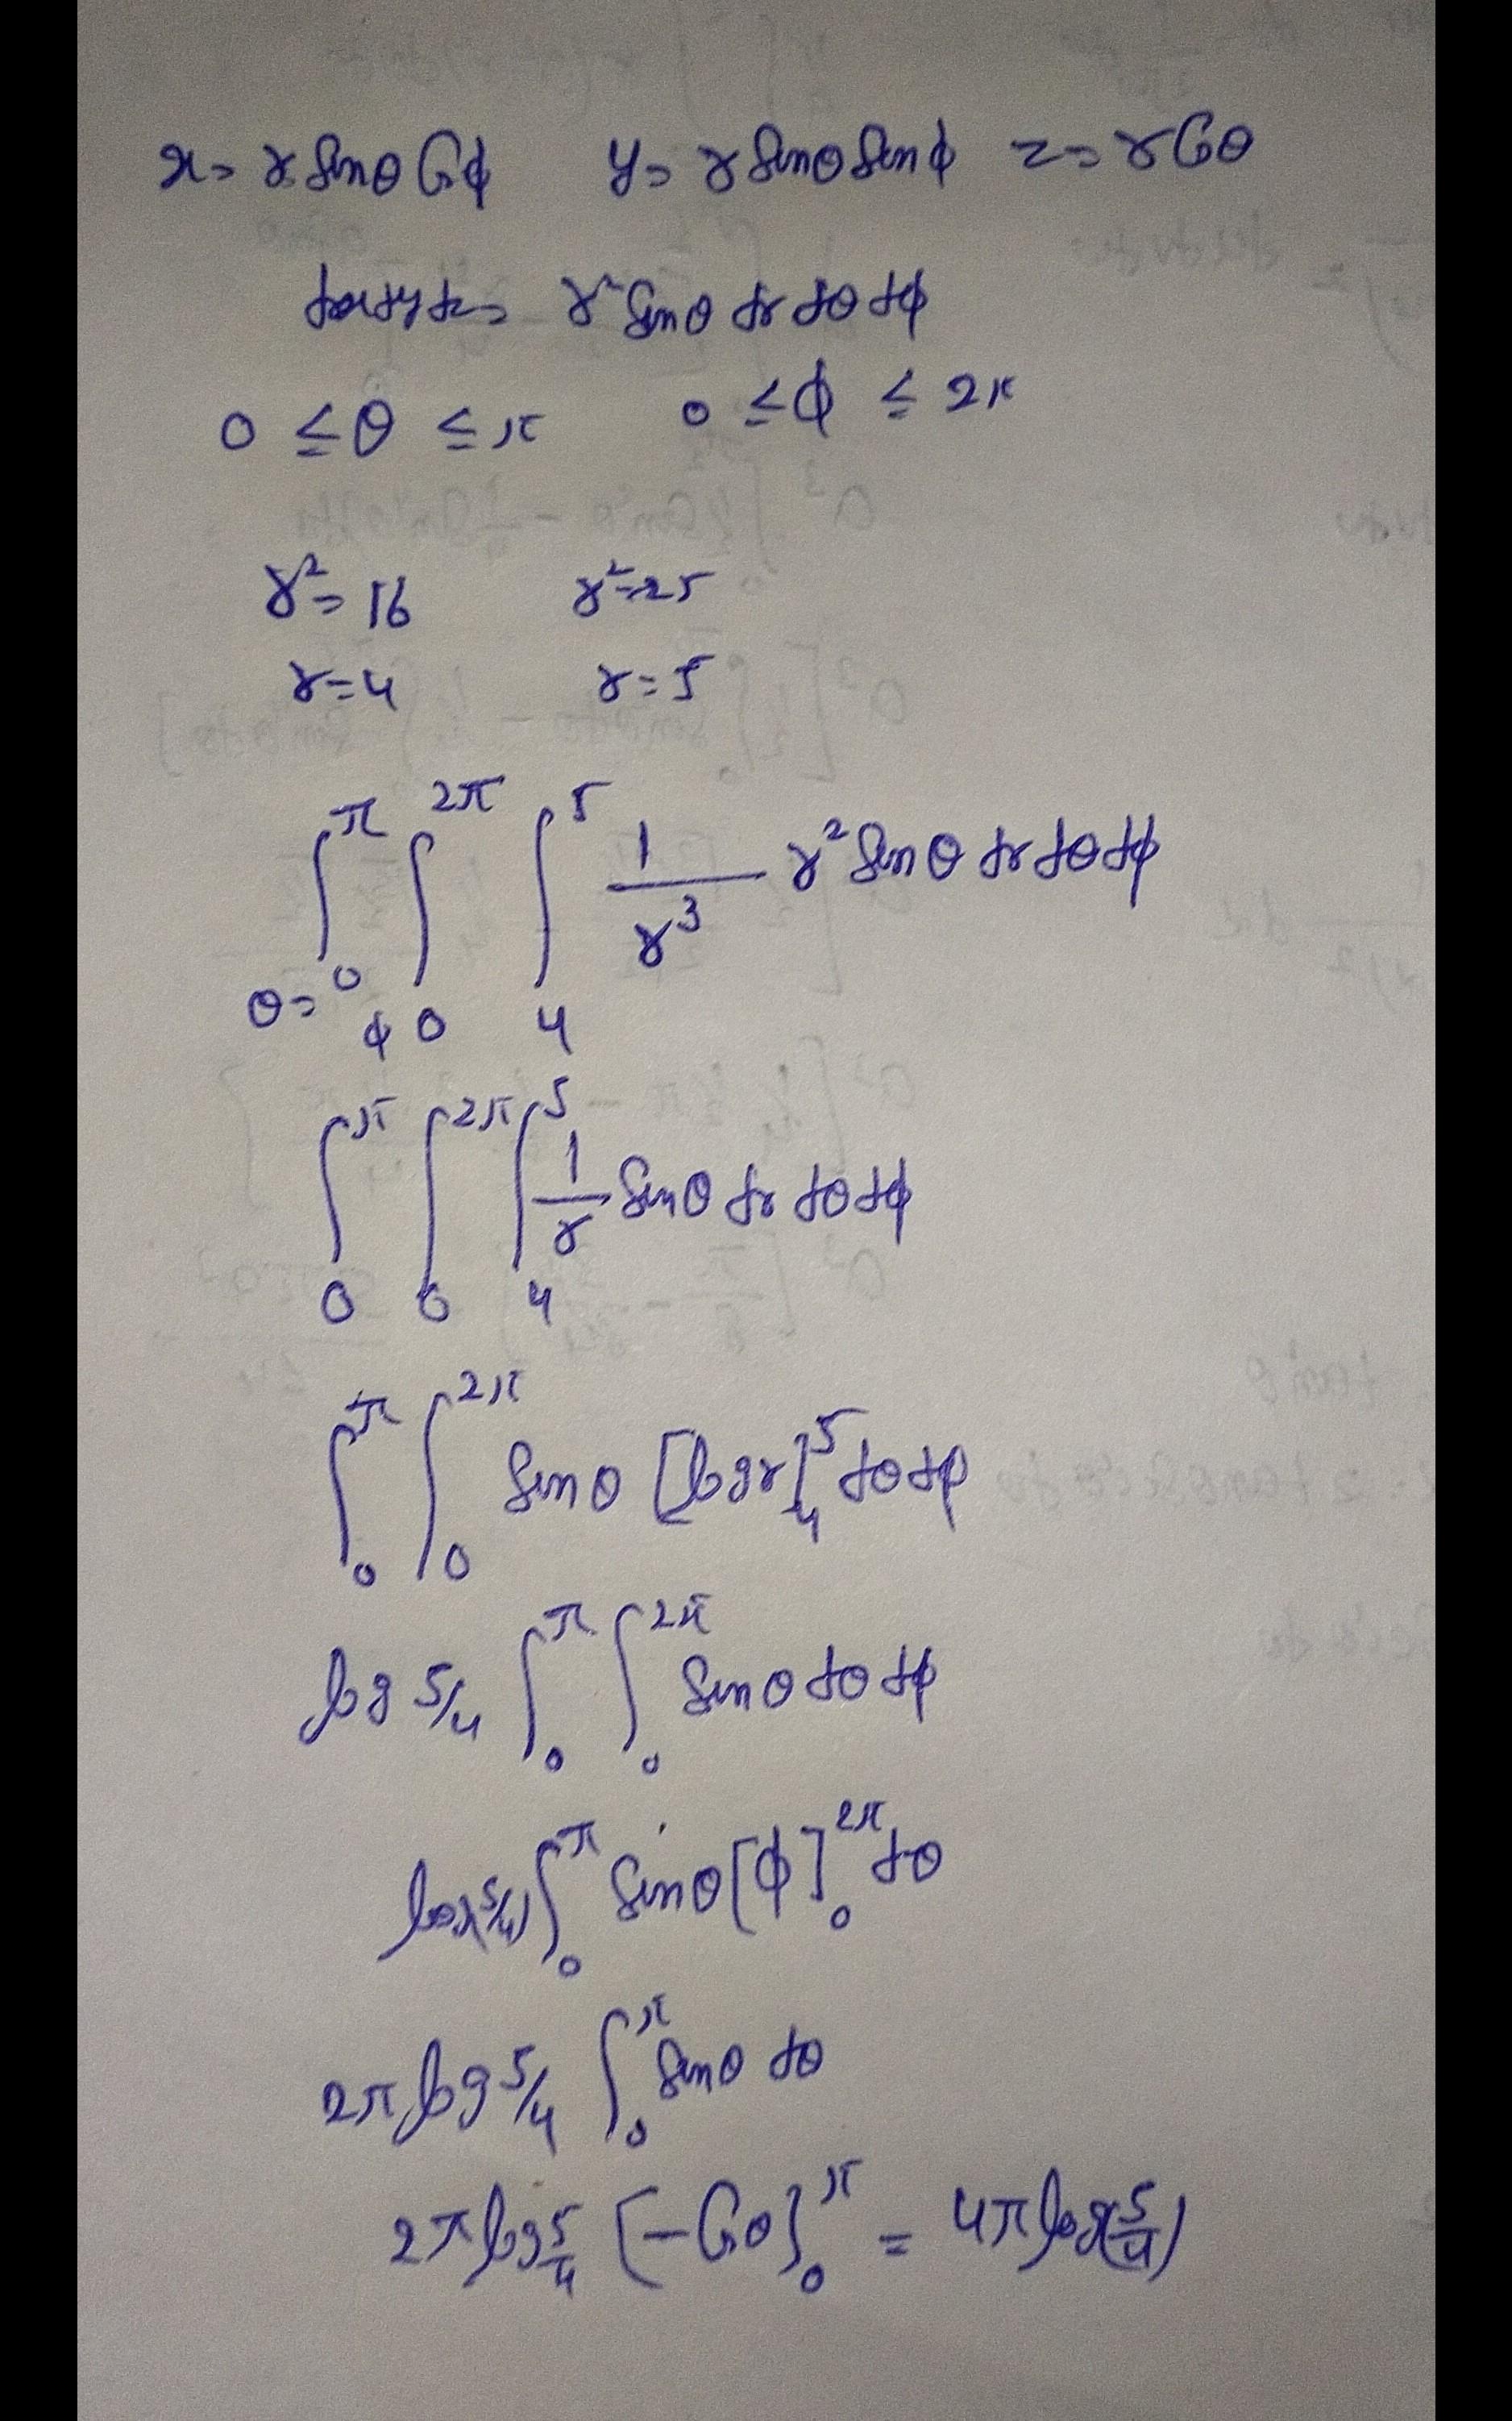 x = r sinθ Cosφ y = r sinθ sinφ z = r Cosθ
dxdydz = r² sinθ dr dθ dφ
0 ≤ θ ≤ π 0 ≤ φ ≤ 2π
r² = 16 r² = 25
r = 4 r = 5
∫_{θ=0}^{π} ∫_{φ 0}^{2π} ∫_4^5 1/r³ r² sinθ dr dθ dφ
∫_0^π ∫_0^{2π} ∫_4^5 1/r sinθ dr dθ dφ
∫_0^π ∫_0^{2π} sinθ [log r]_4^5 dθ dφ
log 5/4 ∫_0^π ∫_0^{2π} sinθ dθ dφ
log(5/4) ∫_0^π sinθ [φ]_0^{2π} dθ
2π log 5/4 ∫_0^π sinθ dθ
2π log 5/4 [-Cosθ]_0^π = 4π log(5/4)